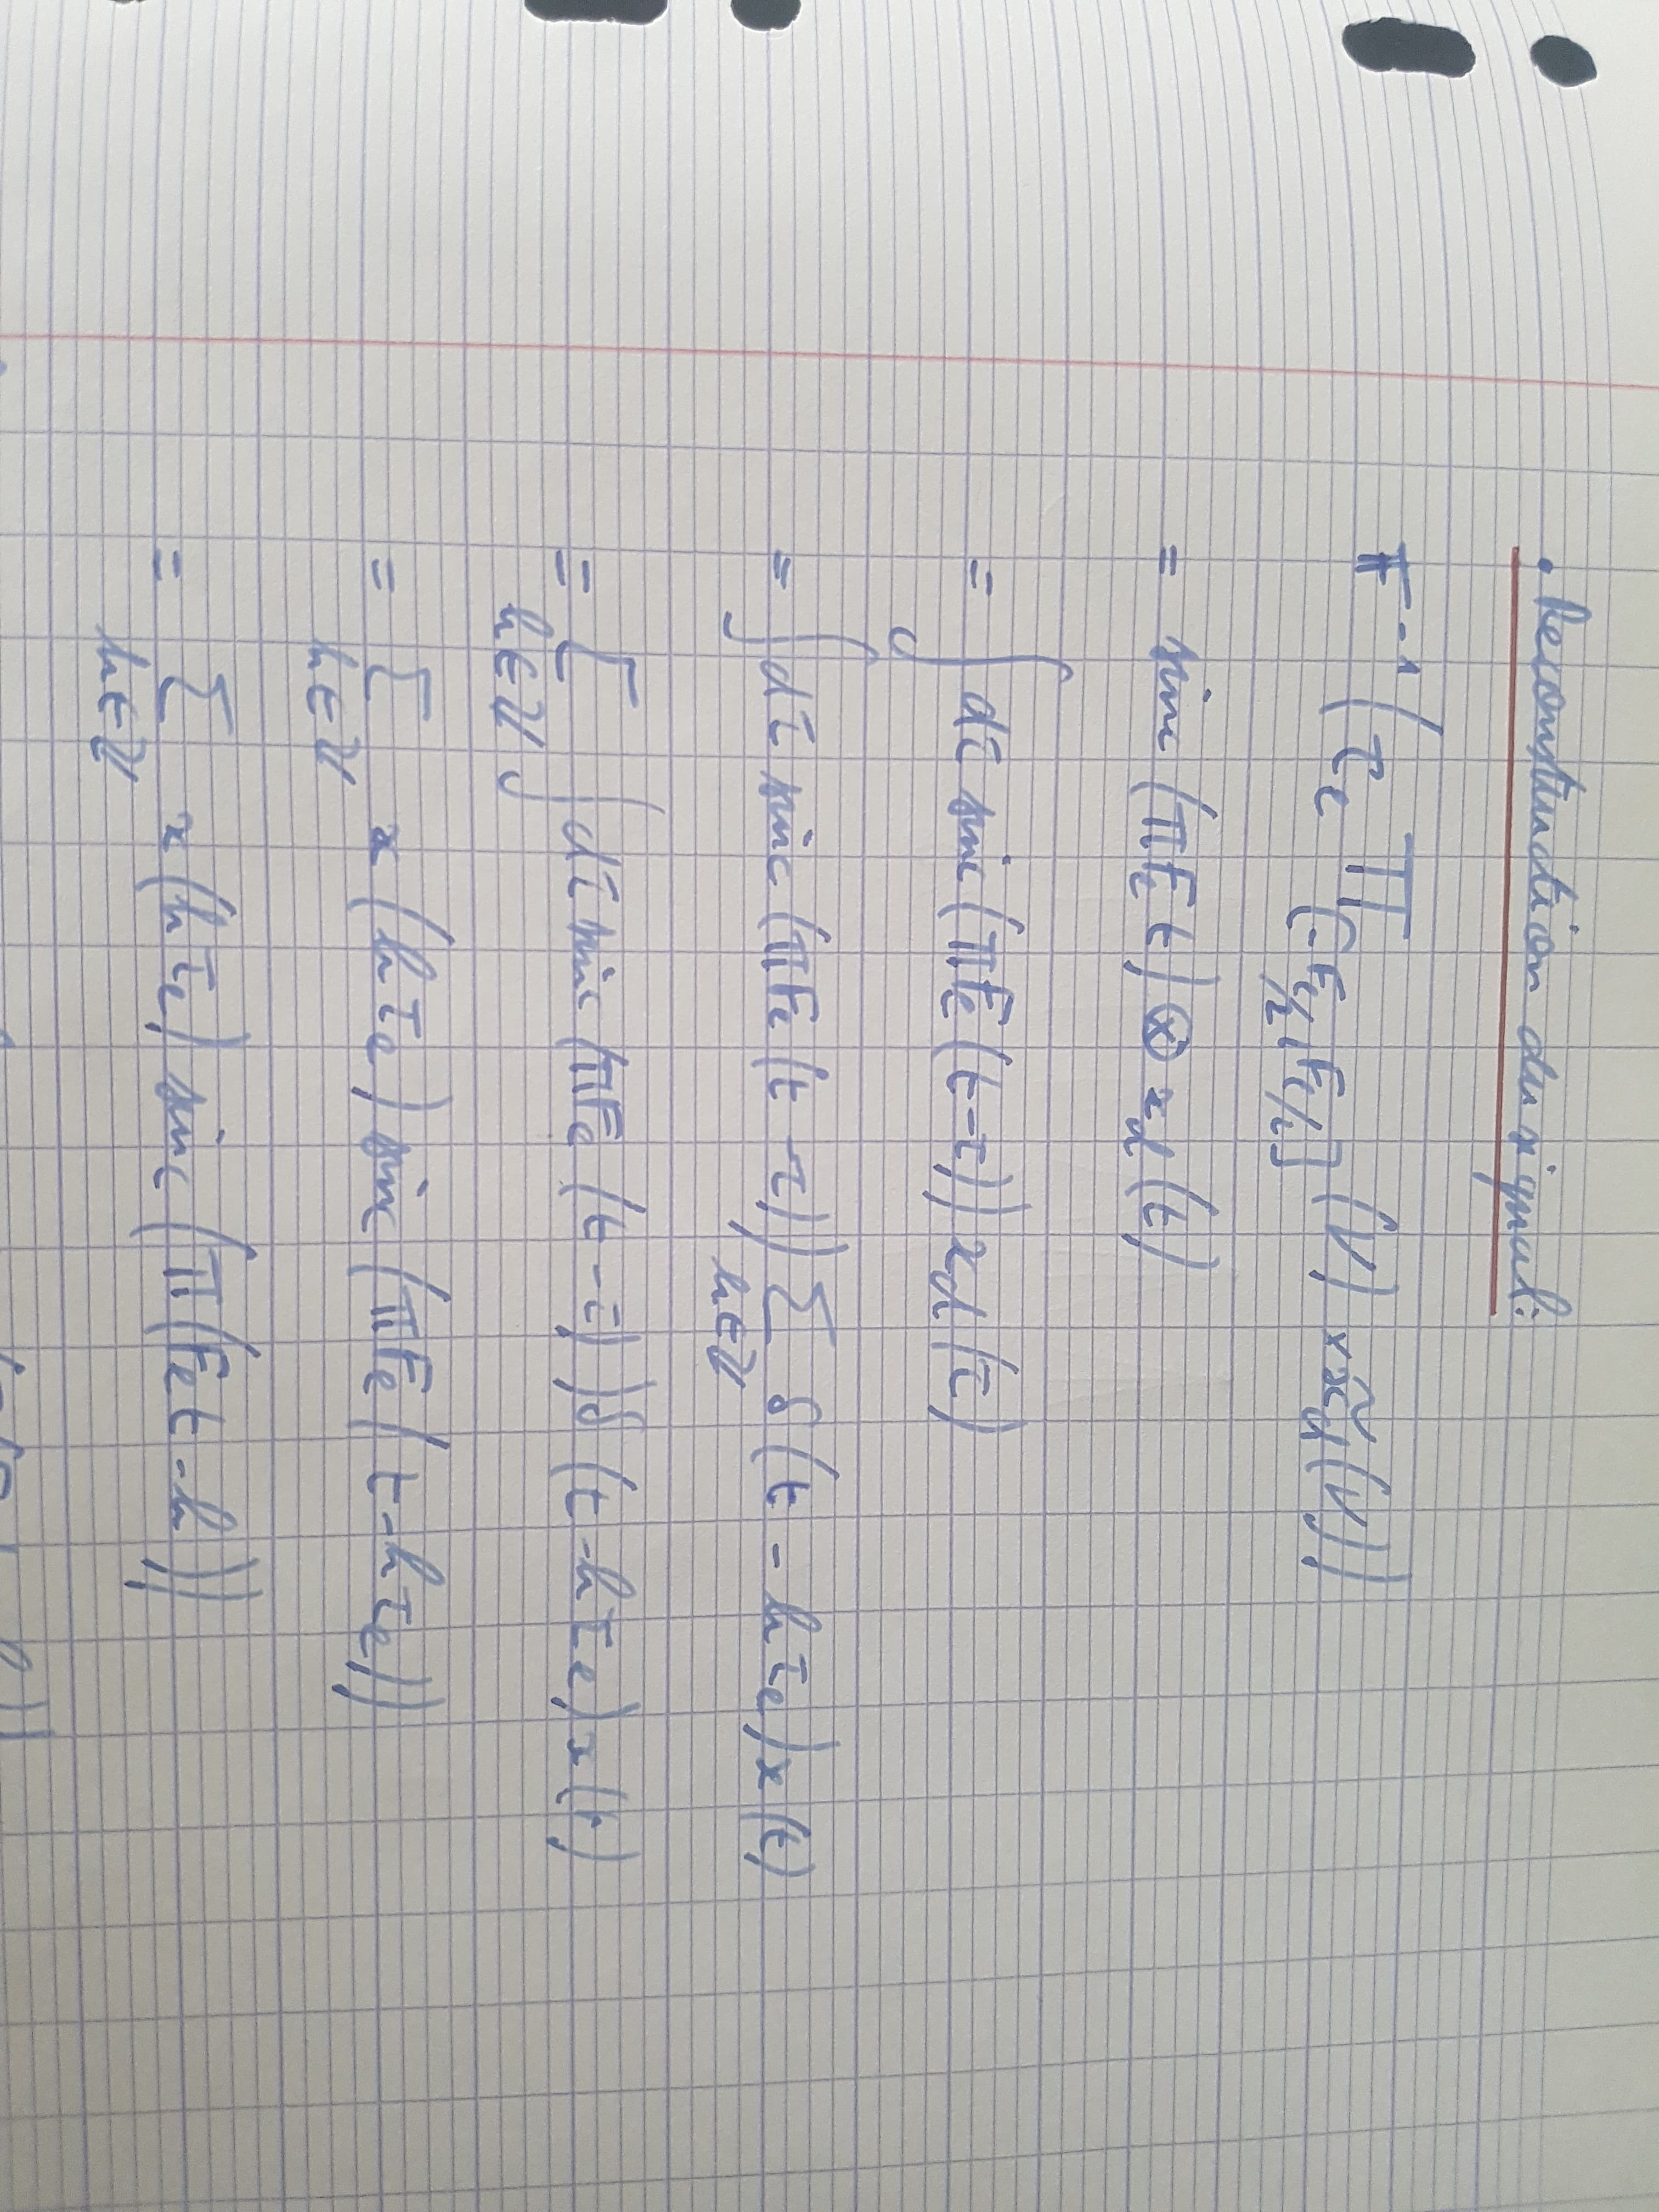 . Reconstruction du signal:
F⁻¹ (Te Π[-Fe/2, Fe/2] (ν) × x̃d(ν))
= sinc (πFe t) ⊗ xd(t)
= ∫ dτ sinc (πFe (t-τ)) xd(τ)
= ∫ dτ sinc (πFe (t-τ)) Σ k∈ℤ δ(t-kTe) x(t)
= Σ k∈ℤ ∫ dτ sinc (πFe (t-τ)) δ(t-kTe) x(t)
= Σ k∈ℤ x(kTe) sinc (πFe(t-kTe))
= Σ k∈ℤ x(kTe) sinc (π(Fet-k)))